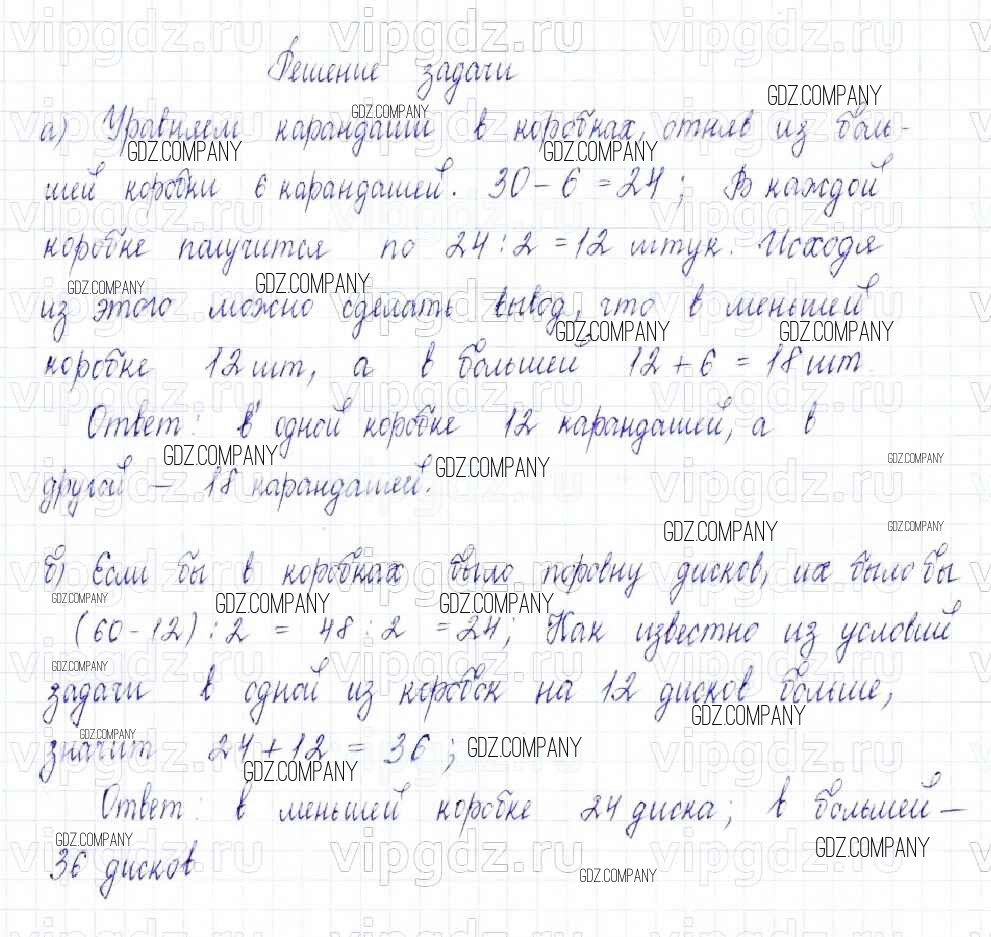 Решение задачи
а) Уравняем карандаши в коробках, отняв из боль-
шей коробки 6 карандашей. 30 - 6 = 24; В каждой
коробке получится по 24 : 2 = 12 штук. Исходя
из этого можно сделать вывод, что в меньшей
коробке 12 шт, а в большей 12 + 6 = 18 шт
Ответ: в одной коробке 12 карандашей, а в
другой — 18 карандашей.
б) Если бы в коробках было поровну дисков, их было бы
(60 - 12) : 2 = 48 : 2 = 24; Как известно из условий
задачи в одной из коробок на 12 дисков больше,
значит 24 + 12 = 36;
Ответ: в меньшей коробке 24 диска; в большей —
36 дисков
vipgdz.ru
GDZ.COMPANY